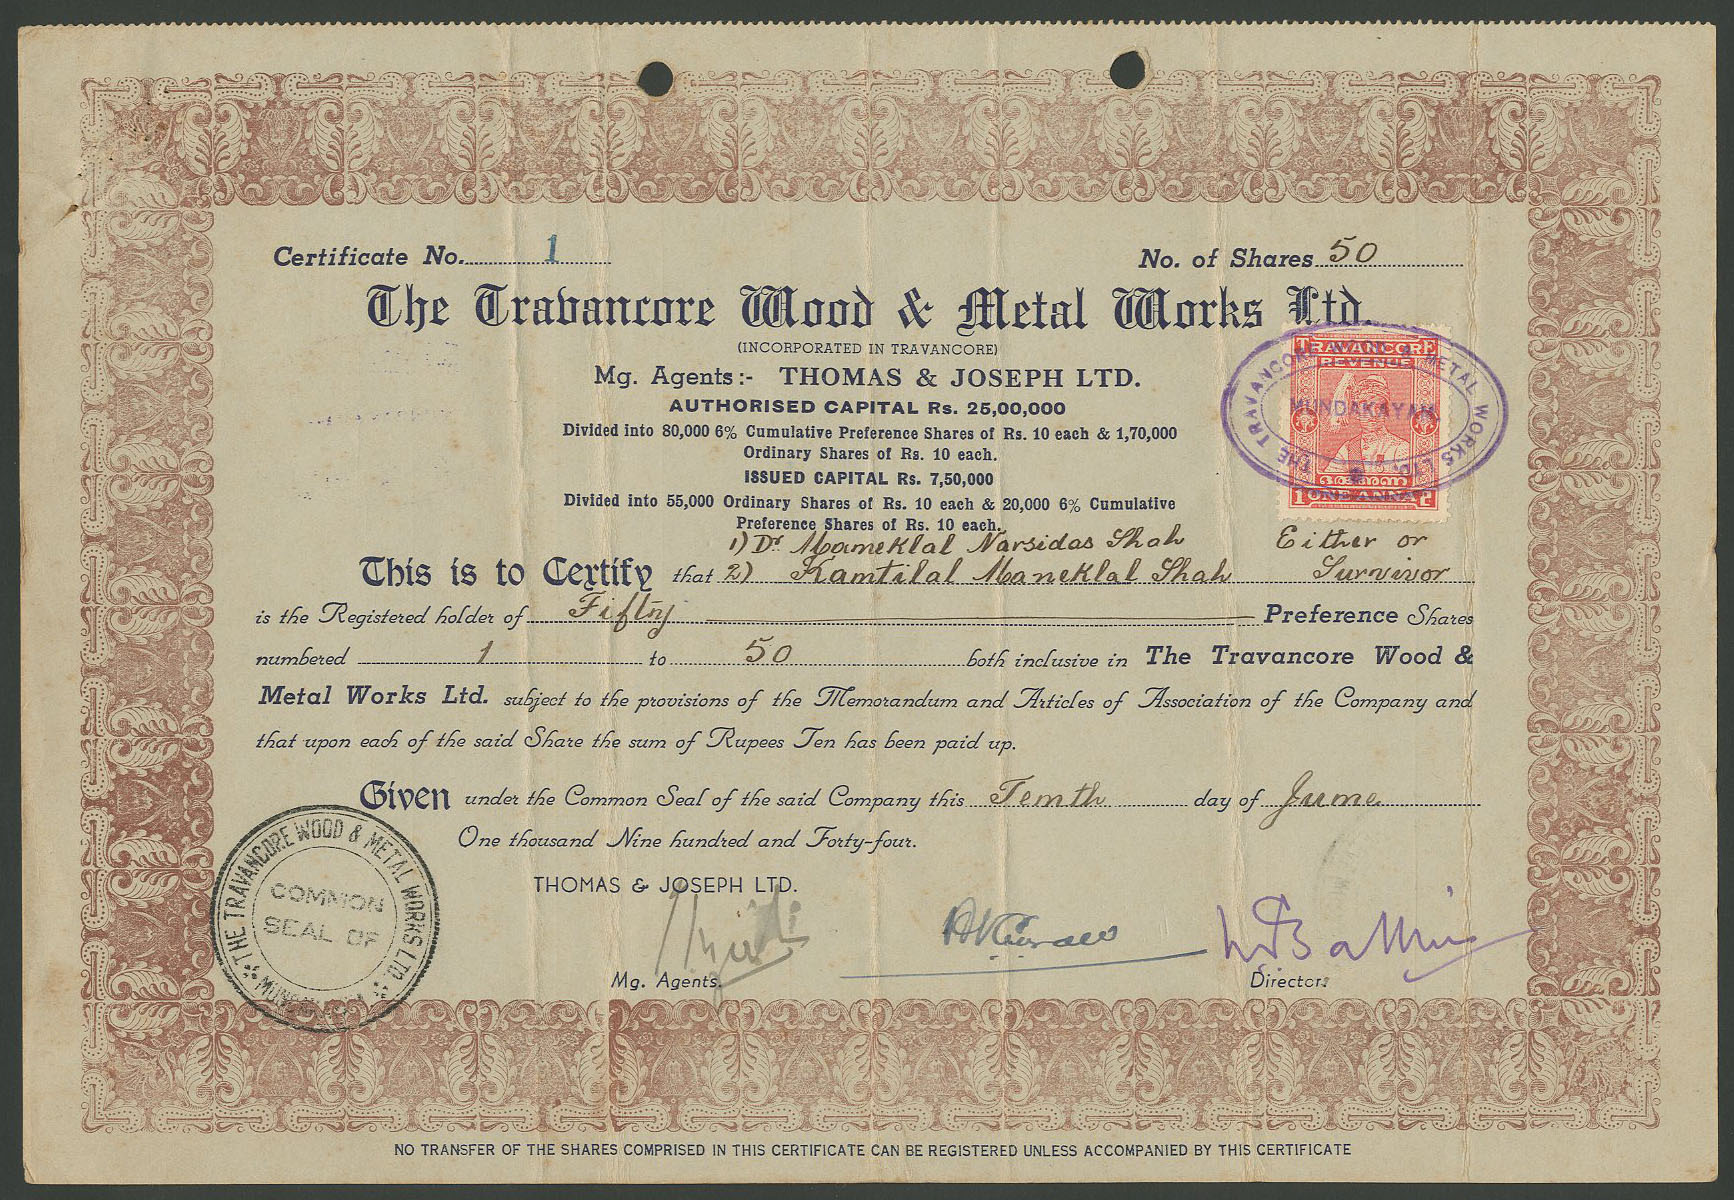 Certificate No. 1
No. of Shares 50
The Travancore Wood & Metal Works Ltd.
(INCORPORATED IN TRAVANCORE)
Mg. Agents:- THOMAS & JOSEPH LTD.
AUTHORISED CAPITAL Rs. 25,00,000
Divided into 80,000 6% Cumulative Preference Shares of Rs. 10 each & 1,70,000
Ordinary Shares of Rs. 10 each.
ISSUED CAPITAL Rs. 7,50,000
Divided into 55,000 Ordinary Shares of Rs. 10 each & 20,000 6% Cumulative
Preference Shares of Rs. 10 each.
TRAVANCORE
REVENUE
ONE ANNA
THE TRAVANCORE WOOD & METAL WORKS LTD.
MUNDAKAYAM
1) Dr Maneklal Narsidas Shah Either or
This is to Certify that 2) Ramtilal Maneklal Shah Survivor
is the Registered holder of Fifty Preference Shares
numbered 1 to 50 both inclusive in The Travancore Wood &
Metal Works Ltd. subject to the provisions of the Memorandum and Articles of Association of the Company and
that upon each of the said Share the sum of Rupees Ten has been paid up.
Given under the Common Seal of the said Company this Tenth day of June
One thousand Nine hundred and Forty-four.
THE TRAVANCORE WOOD & METAL WORKS LTD.
COMMON
SEAL OF
THOMAS & JOSEPH LTD.
Mg. Agents.
Directors
NO TRANSFER OF THE SHARES COMPRISED IN THIS CERTIFICATE CAN BE REGISTERED UNLESS ACCOMPANIED BY THIS CERTIFICATE